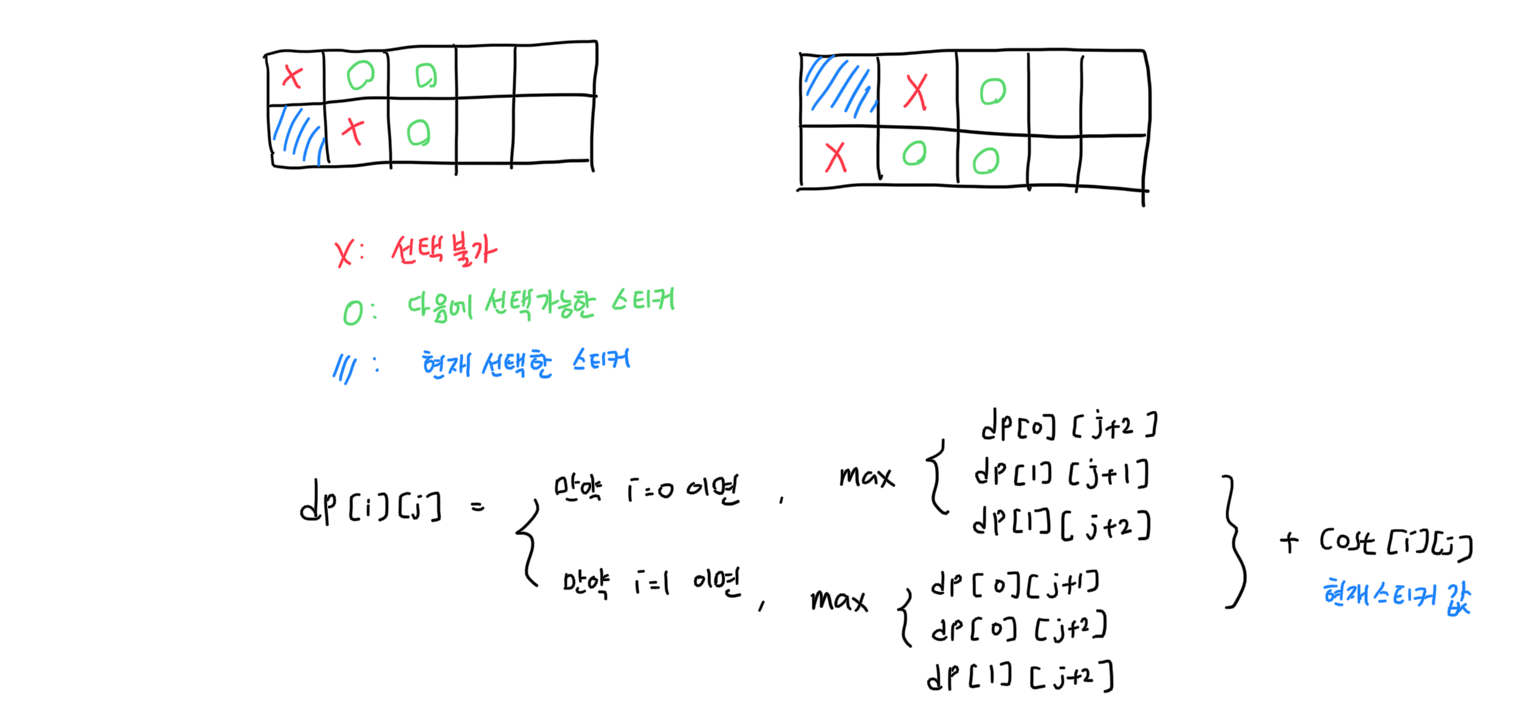 X O O
X O
X O
X O O
X: 선택불가
O: 다음에 선택가능한 스티커
///: 현재 선택한 스티커
dp[i][j] = { 만약 i=0 이면, max { dp[0][j+2]
dp[1][j+1]
dp[1][j+2]
만약 i=1 이면, max { dp[0][j+1]
dp[0][j+2]
dp[1][j+2]
} + Cost[i][j]
현재스티커 값